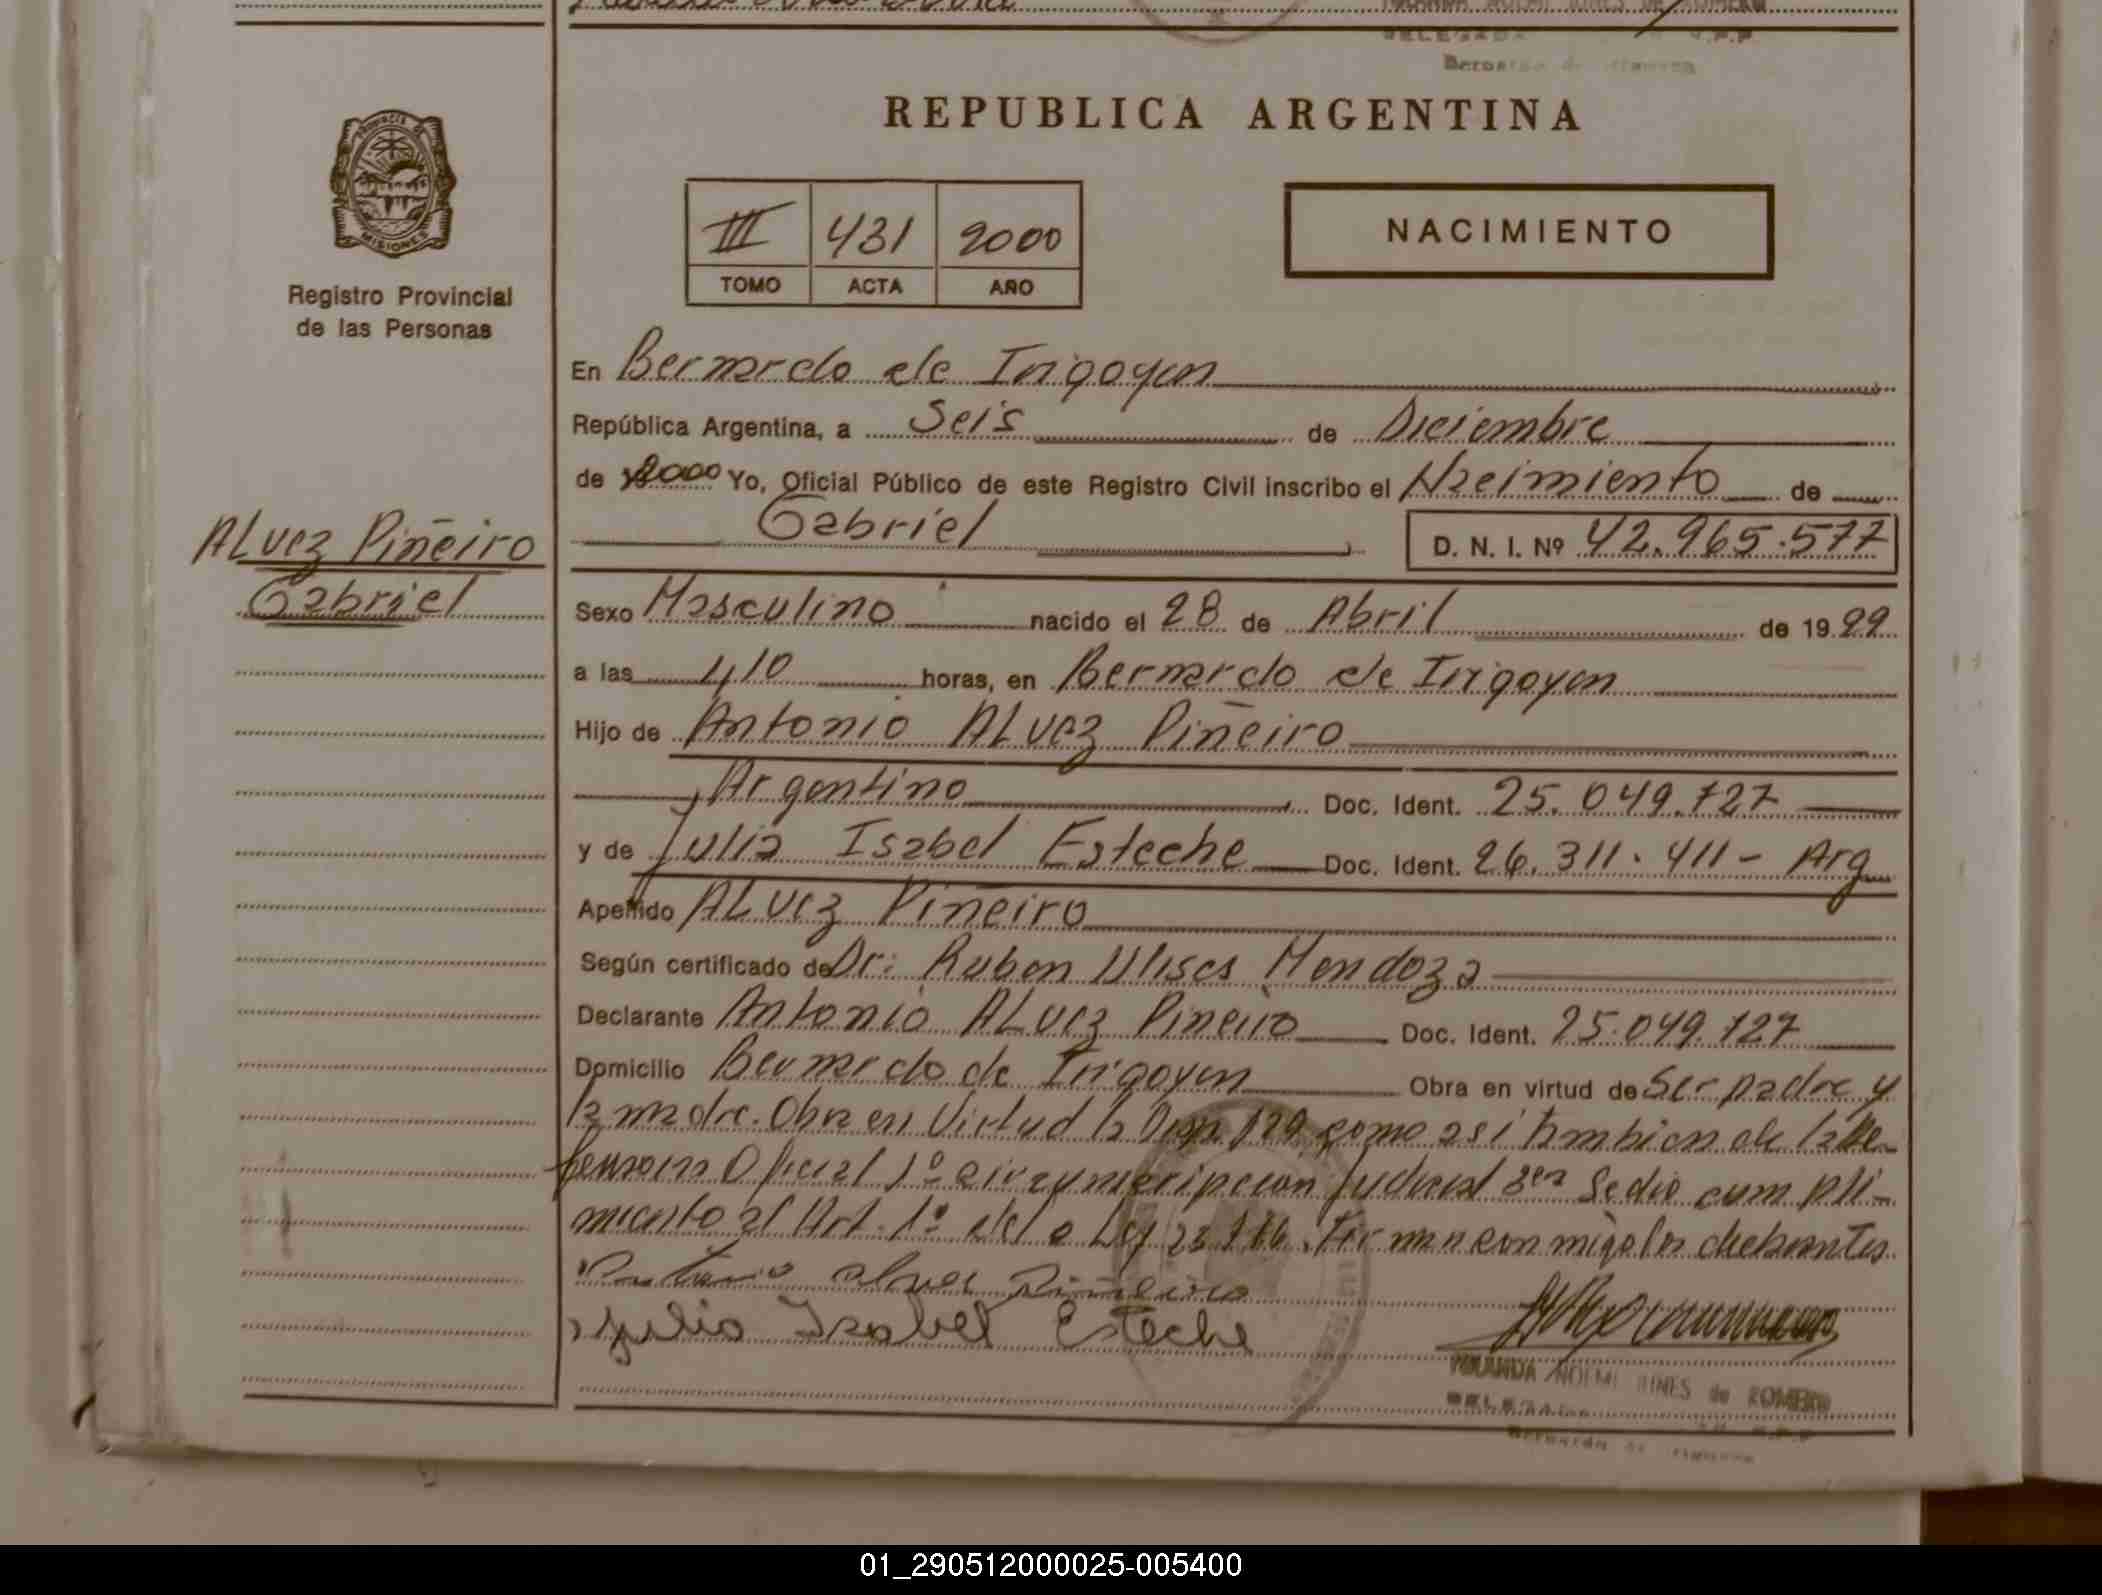 REPUBLICA ARGENTINA
PROVINCIA DE
MISIONES
Registro Provincial
de las Personas
III 431 2000
TOMO ACTA AÑO
NACIMIENTO
En Bernardo de Irigoyen
República Argentina, a Seis de Diciembre
de 2000 Yo, Oficial Público de este Registro Civil inscribo el Nacimiento de
Gabriel D. N. I. Nº 42.965.577
ALvez Piñeiro
Gabriel
Sexo Masculino nacido el 28 de Abril de 1999
a las 4,10 horas, en Bernardo de Irigoyen
Hijo de Antonio ALvez Piñeiro
Argentino Doc. Ident. 25.049.727
y de Julia Isabel Esteche Doc. Ident. 26.311.411- Arg
Apellido ALvez Piñeiro
Según certificado de Dr: Ruben Ulises Mendoza
Declarante Antonio ALvez Piñeiro Doc. Ident. 25.049.727
Domicilio Bernardo de Irigoyen Obra en virtud de Ser padre y
la madre. Obra en Virtud la como asi tambien de la De-
Oficial 1º Judicial Sedio cumpli-
miento al Art. 1º de la Ley Firman conmigo los
Antonio alvez Piñeiro
Julia Isabel Esteche
NOEMI de ROMERO
DELEGADA
Bernardo de Irigoyen
01_290512000025-005400